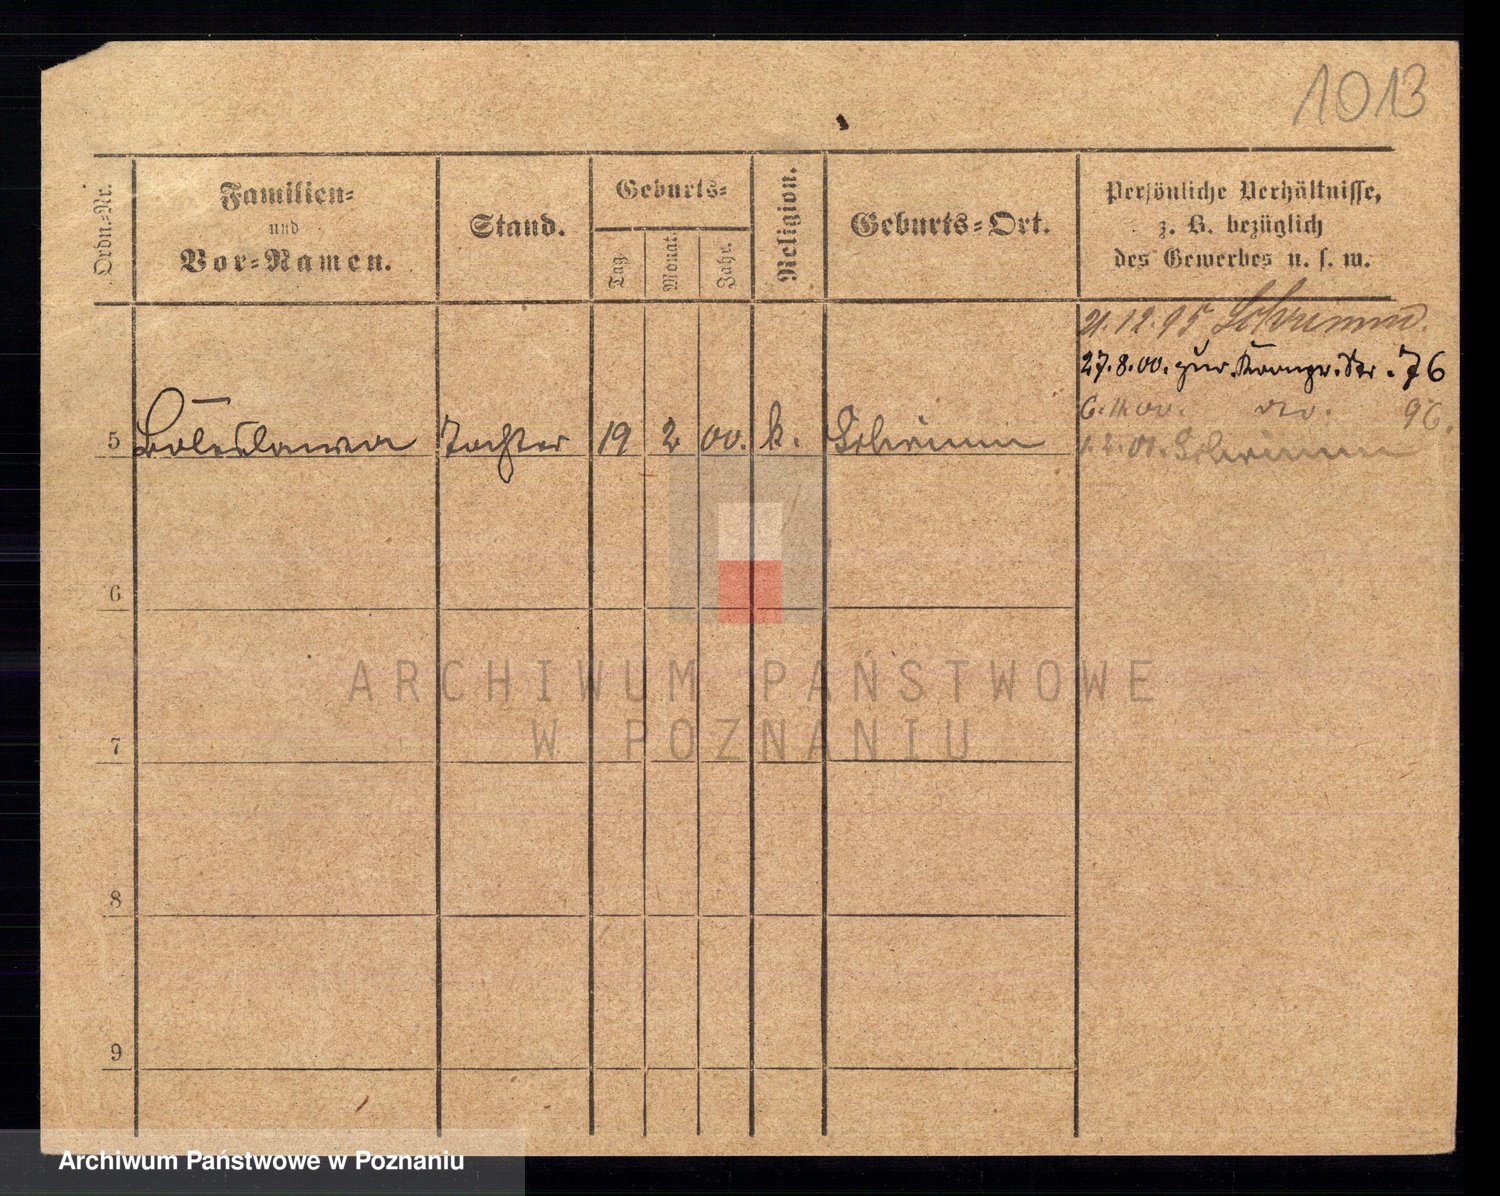 1013
Ordn.=Nr.
Familien=
und
Vor=Namen.
Stand.
Geburts=
Tag.
Monat.
Jahr.
Religion.
Geburts=Ort.
Persönliche Verhältnisse,
z. B. bezüglich
des Gewerbes u. s. w.
21.12.95 Schrimm.
27.8.00. zur. Kronpr. Str. 76
6.11.00. do. 96.
1.2.01. Schrimm
5 Boleslawa Tochter 19 2 00. k. Schrimm
6
7
8
9
ARCHIWUM PAŃSTWOWE
W POZNANIU
Archiwum Państwowe w Poznaniu